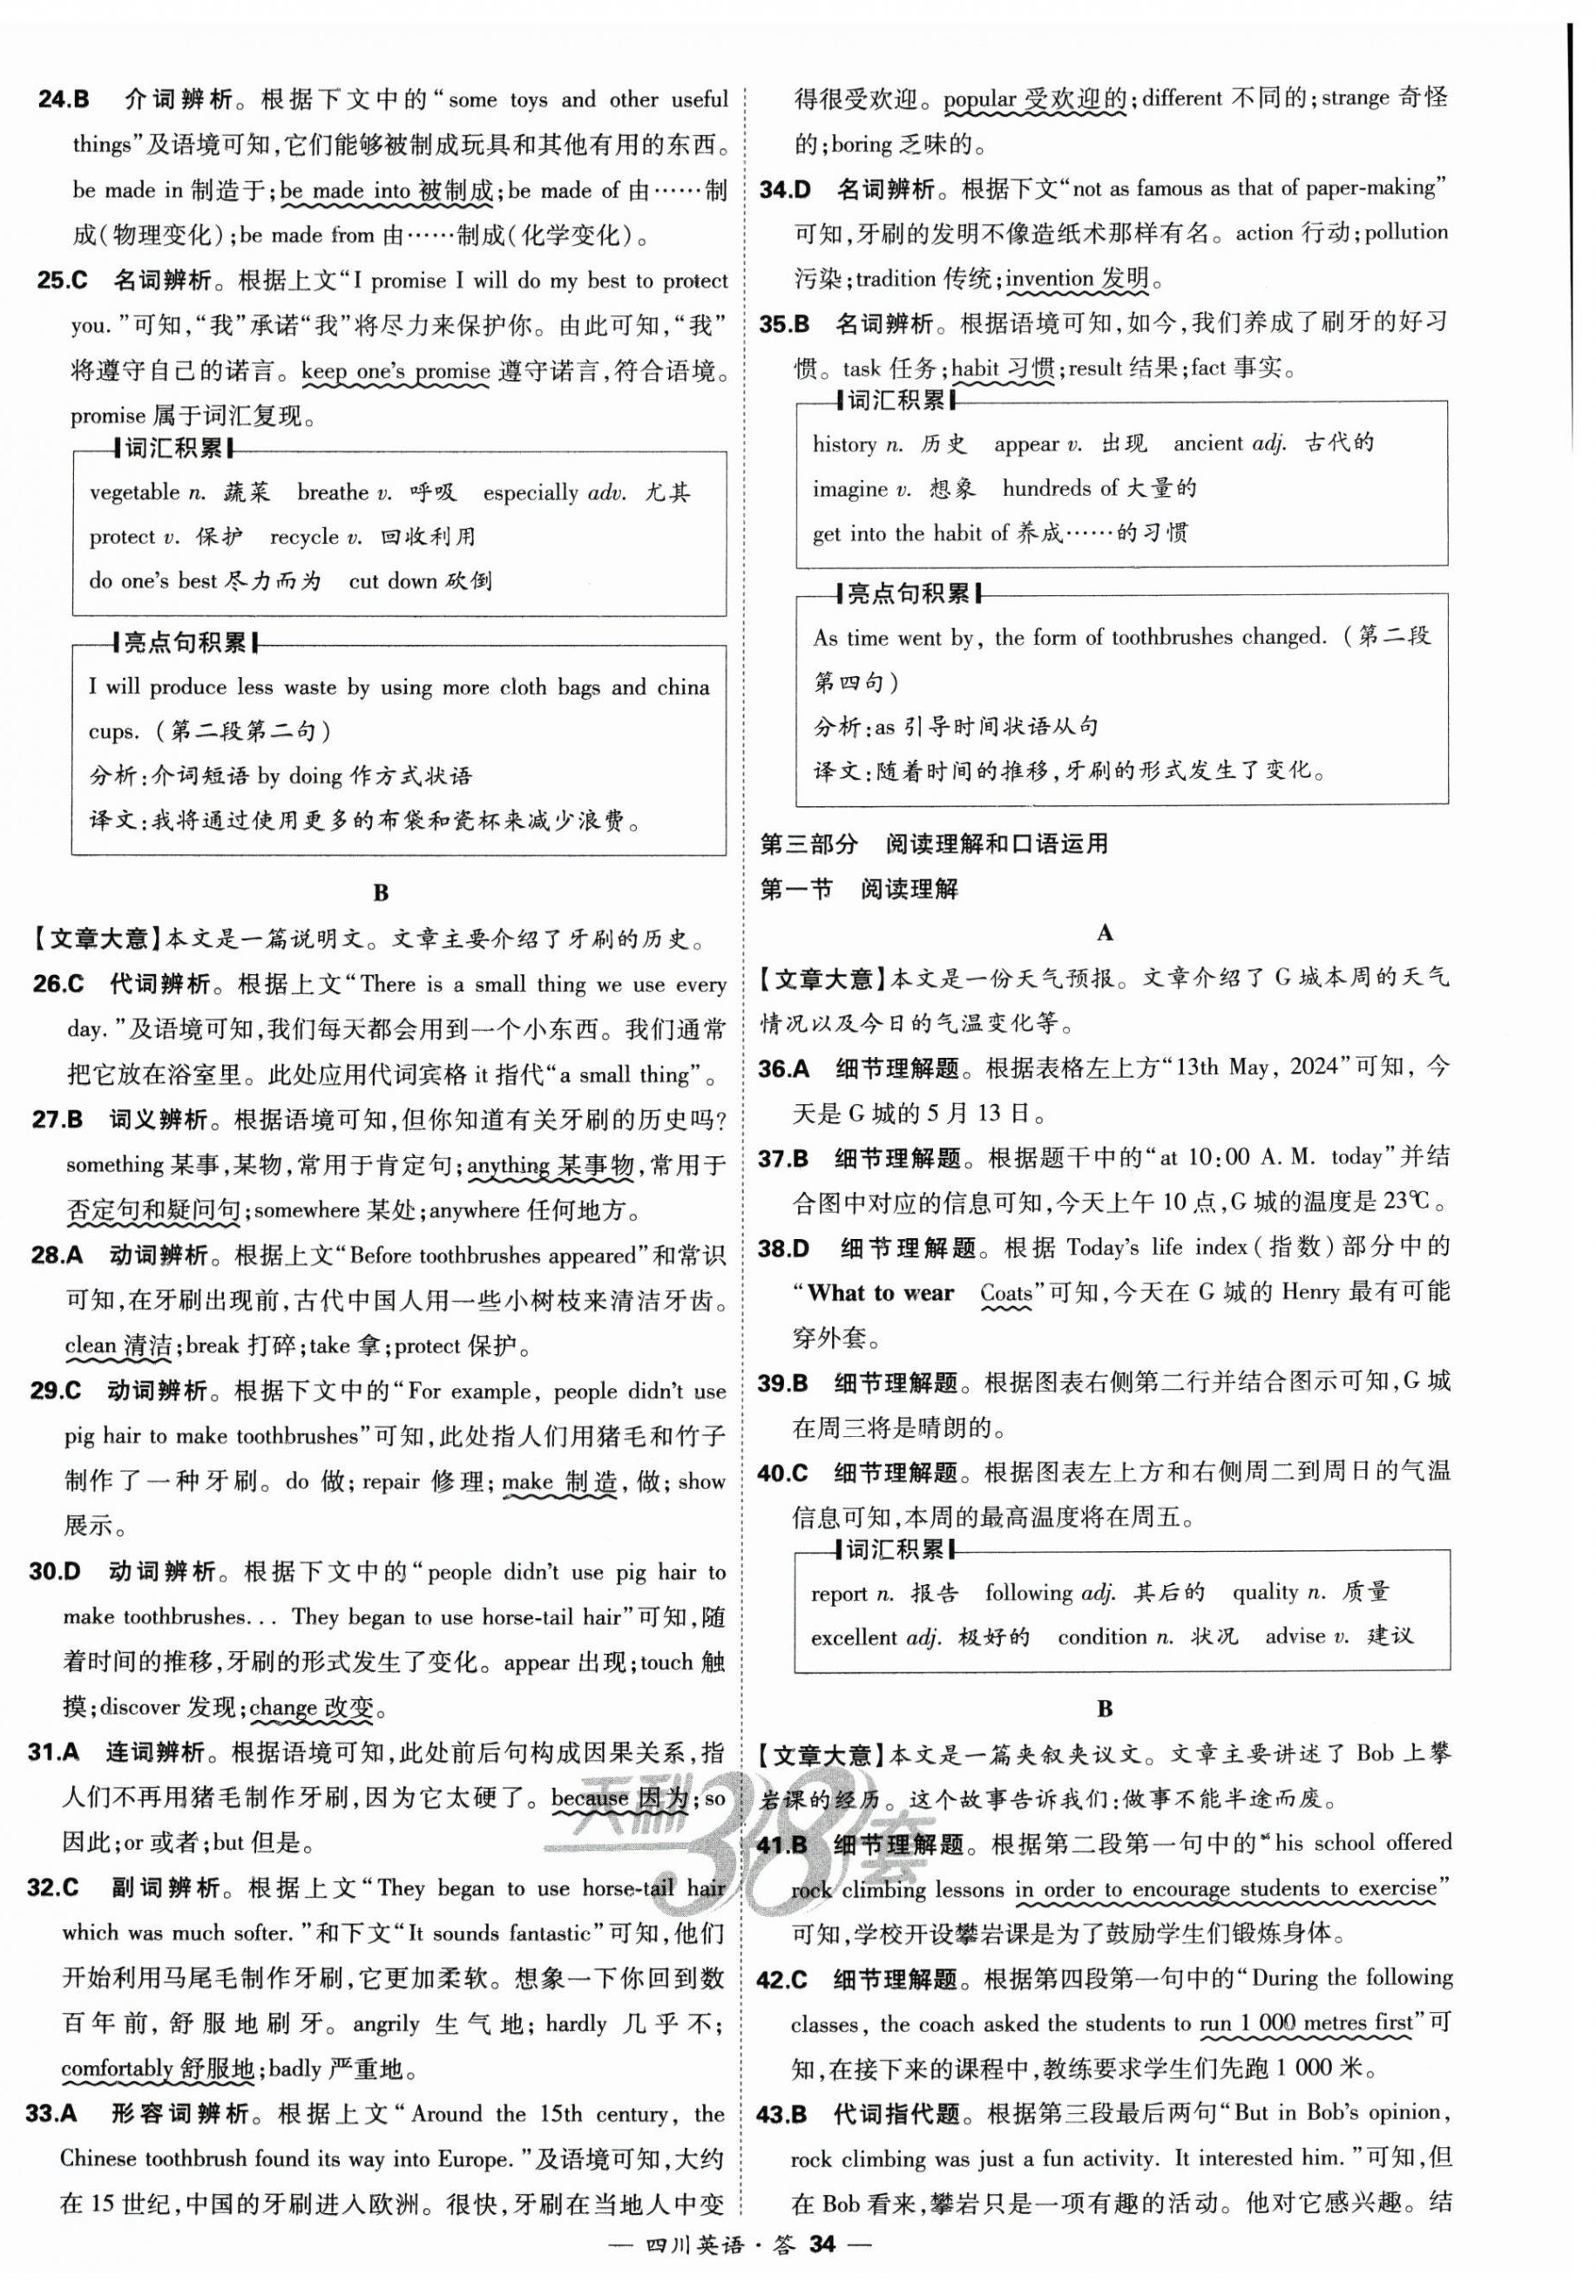 24.B 介词辨析。根据下文中的“some toys and other useful
things”及语境可知,它们能够被制成玩具和其他有用的东西。
be made in 制造于;be made into 被制成;be made of 由……制
成(物理变化);be made from 由……制成(化学变化)。
25.C 名词辨析。根据上文“I promise I will do my best to protect
you.”可知,“我”承诺“我”将尽力来保护你。由此可知,“我”
将遵守自己的诺言。keep one's promise 遵守诺言,符合语境。
promise 属于词汇复现。
词汇积累
vegetable n. 蔬菜 breathe v. 呼吸 especially adv. 尤其
protect v. 保护 recycle v. 回收利用
do one's best 尽力而为 cut down 砍倒
亮点句积累
I will produce less waste by using more cloth bags and china
cups. (第二段第二句)
分析:介词短语 by doing 作方式状语
译文:我将通过使用更多的布袋和瓷杯来减少浪费。
B
【文章大意】本文是一篇说明文。文章主要介绍了牙刷的历史。
26.C 代词辨析。根据上文“There is a small thing we use every
day.”及语境可知,我们每天都会用到一个小东西。我们通常
把它放在浴室里。此处应用代词宾格 it 指代“a small thing”。
27.B 词义辨析。根据语境可知,但你知道有关牙刷的历史吗?
something 某事,某物,常用于肯定句;anything 某事物,常用于
否定句和疑问句;somewhere 某处;anywhere 任何地方。
28.A 动词辨析。根据上文“Before toothbrushes appeared”和常识
可知,在牙刷出现前,古代中国人用一些小树枝来清洁牙齿。
clean 清洁;break 打碎;take 拿;protect 保护。
29.C 动词辨析。根据下文中的“For example, people didn't use
pig hair to make toothbrushes”可知,此处指人们用猪毛和竹子
制作了一种牙刷。do 做; repair 修理; make 制造,做; show
展示。
30.D 动词辨析。根据下文中的“people didn't use pig hair to
make toothbrushes... They began to use horse-tail hair”可知,随
着时间的推移,牙刷的形式发生了变化。appear 出现;touch 触
摸;discover 发现;change 改变。
31.A 连词辨析。根据语境可知,此处前后句构成因果关系,指
人们不再用猪毛制作牙刷,因为它太硬了。because 因为;so
因此;or 或者;but 但是。
32.C 副词辨析。根据上文“They began to use horse-tail hair
which was much softer.”和下文“It sounds fantastic”可知,他们
开始利用马尾毛制作牙刷,它更加柔软。想象一下你回到数
百年前,舒服地刷牙。angrily 生气地; hardly 几乎不;
comfortably 舒服地;badly 严重地。
33.A 形容词辨析。根据上文“Around the 15th century, the
Chinese toothbrush found its way into Europe.”及语境可知,大约
在 15 世纪,中国的牙刷进入欧洲。很快,牙刷在当地人中变
得很受欢迎。popular 受欢迎的;different 不同的;strange 奇怪
的;boring 乏味的。
34.D 名词辨析。根据下文“not as famous as that of paper-making”
可知,牙刷的发明不像造纸术那样有名。action 行动;pollution
污染;tradition 传统;invention 发明。
35.B 名词辨析。根据语境可知,如今,我们养成了刷牙的好习
惯。task 任务;habit 习惯;result 结果;fact 事实。
词汇积累
history n. 历史 appear v. 出现 ancient adj. 古代的
imagine v. 想象 hundreds of 大量的
get into the habit of 养成……的习惯
亮点句积累
As time went by, the form of toothbrushes changed. (第二段
第四句)
分析:as 引导时间状语从句
译文:随着时间的推移,牙刷的形式发生了变化。
第三部分 阅读理解和口语运用
第一节 阅读理解
A
【文章大意】本文是一份天气预报。文章介绍了 G 城本周的天气
情况以及今日的气温变化等。
36.A 细节理解题。根据表格左上方“13th May, 2024”可知,今
天是 G 城的 5 月 13 日。
37.B 细节理解题。根据题干中的“at 10:00 A. M. today”并结
合图中对应的信息可知,今天上午 10 点,G 城的温度是 23℃。
38.D 细节理解题。根据 Today's life index(指数)部分中的
“What to wear Coats”可知,今天在 G 城的 Henry 最有可能
穿外套。
39.B 细节理解题。根据图表右侧第二行并结合图示可知,G 城
在周三将是晴朗的。
40.C 细节理解题。根据图表左上方和右侧周二到周日的气温
信息可知,本周的最高温度将在周五。
词汇积累
report n. 报告 following adj. 其后的 quality n. 质量
excellent adj. 极好的 condition n. 状况 advise v. 建议
B
【文章大意】本文是一篇夹叙夹议文。文章主要讲述了 Bob 上攀
岩课的经历。这个故事告诉我们:做事不能半途而废。
41.B 细节理解题。根据第二段第一句中的“his school offered
rock climbing lessons in order to encourage students to exercise”
可知,学校开设攀岩课是为了鼓励学生们锻炼身体。
42.C 细节理解题。根据第四段第一句中的“During the following
classes, the coach asked the students to run 1 000 metres first”可
知,在接下来的课程中,教练要求学生们先跑 1 000 米。
43.B 代词指代题。根据第三段最后两句“But in Bob's opinion,
rock climbing was just a fun activity. It interested him.”可知,但
在 Bob 看来,攀岩只是一项有趣的活动。他对它感兴趣。结
天利38套
— 四川英语·答 34 —